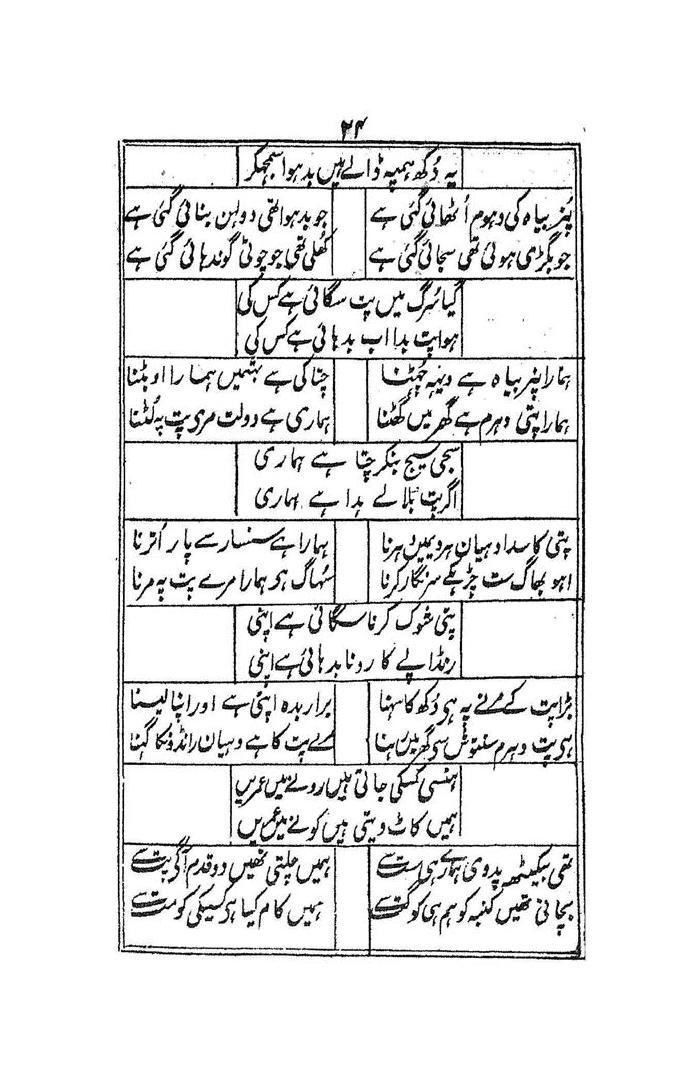 ۲۴
یہ دُکھ ہمپہ ڈالے ہیں بدہوا سمجھکر
پُنر بیاہ کی دہوم اُٹھائی گئی ہے جو بدہوا تھی دولہن بنائی گئی ہے
جو بگڑی ہوئی تھی سجائی گئی ہے کُھلی تھی جو چوٹی گوندہائی گئی ہے
گیا سُرگ میں پت سگائی ہے کس کی
ہوا پت بدا اب بدہائی ہے کس کی
ہمارا پنر بیاہ ہے دیہہ چُھٹنا چتا کی ہے بہسمیں ہمارا اوبٹنا
ہمارا پتی دہرم ہے گھر میں گُھٹنا ہماری ہے دولت مری پت پہ لُٹنا
سجی سیج بنکر چتا ہے ہماری
اگر پت بُلالے بدا ہے ہماری
پتی کا سدا دہیان ہردیمیں دہرنا ہمارا ہے سنسار سے پار اُترنا
اہو بھاگ ست چڑہکے سنگار کرنا سُہاگ ہے ہمارا مرے پت پہ مرنا
پتی شوک کرنا سگائی ہے اپنی
رنڈاپے کا رونا بدہائی ہے اپنی
بڑا پت کے مرنے پہ ہی دُکھ کا سہنا برا ربدہ اپنی ہے اور اپنا لیسنا
ہی پت دہرم سنتوش سی گھر میں رہنا مرے پت کا ہے دہیان رانڈونکا گہنا
ہنسی کسکی جاتی ہیں رونے میں عمریں
ہمیں کاٹ دیتی ہیں کونے میں عمریں
تھی بیکنٹھ پدوی ہمارے ہی ست سے ہمیں چلتی تھیں دو قدم آگی پت سے
بچاتی تھیں کنبہ کو ہم ہی کوگت سے ہمیں کام کیا ہر کسیکی کومت سے